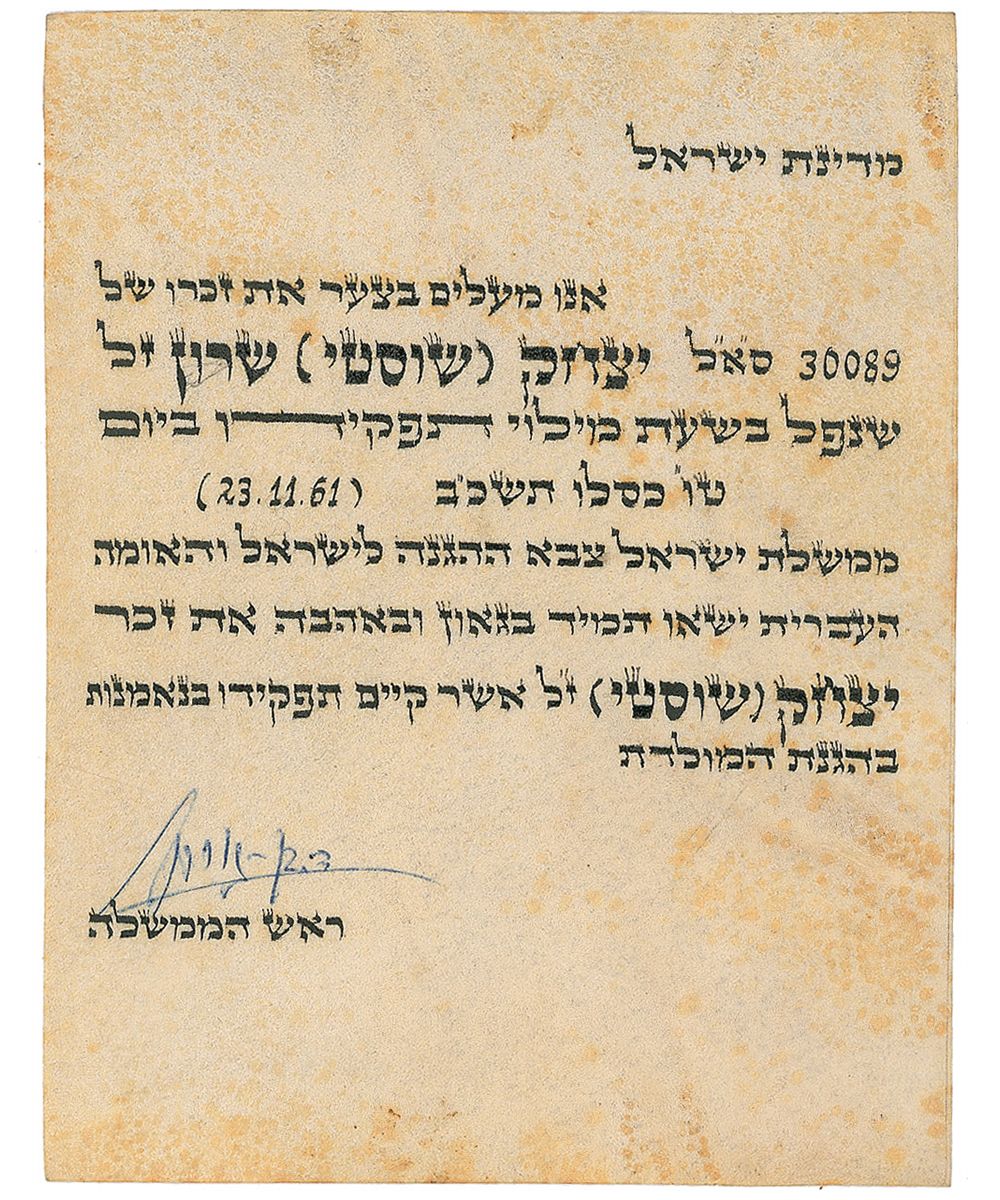 מדינת ישראל
אנו מעלים בצער את זכרו של
30089 סא"ל יצחק (שוסטי) שרון ז"ל
שנפל בשעת מילוי תפקידו ביום
טו' כסלו תשכ"ב (23.11.61)
ממשלת ישראל צבא ההגנה לישראל והאומה
העברית ישאו תמיד בגאון ובאהבה את זכר
יצחק (שוסטי) ז"ל אשר קיים תפקידו בנאמנות
בהגנת המולדת
ד. בן-גוריון
ראש הממשלה